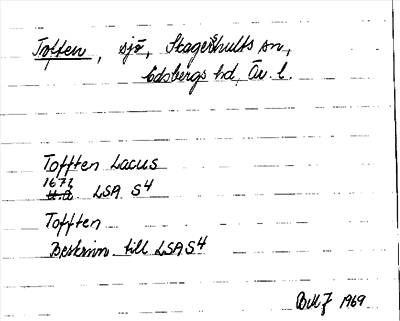 Toften, sjö, Skagershults sn,
Edsbergs hd, Än. l.
Tofften Lacus
1671
u.å. LSA S4
Toffften
Beskrivn. till LSA S4
1969